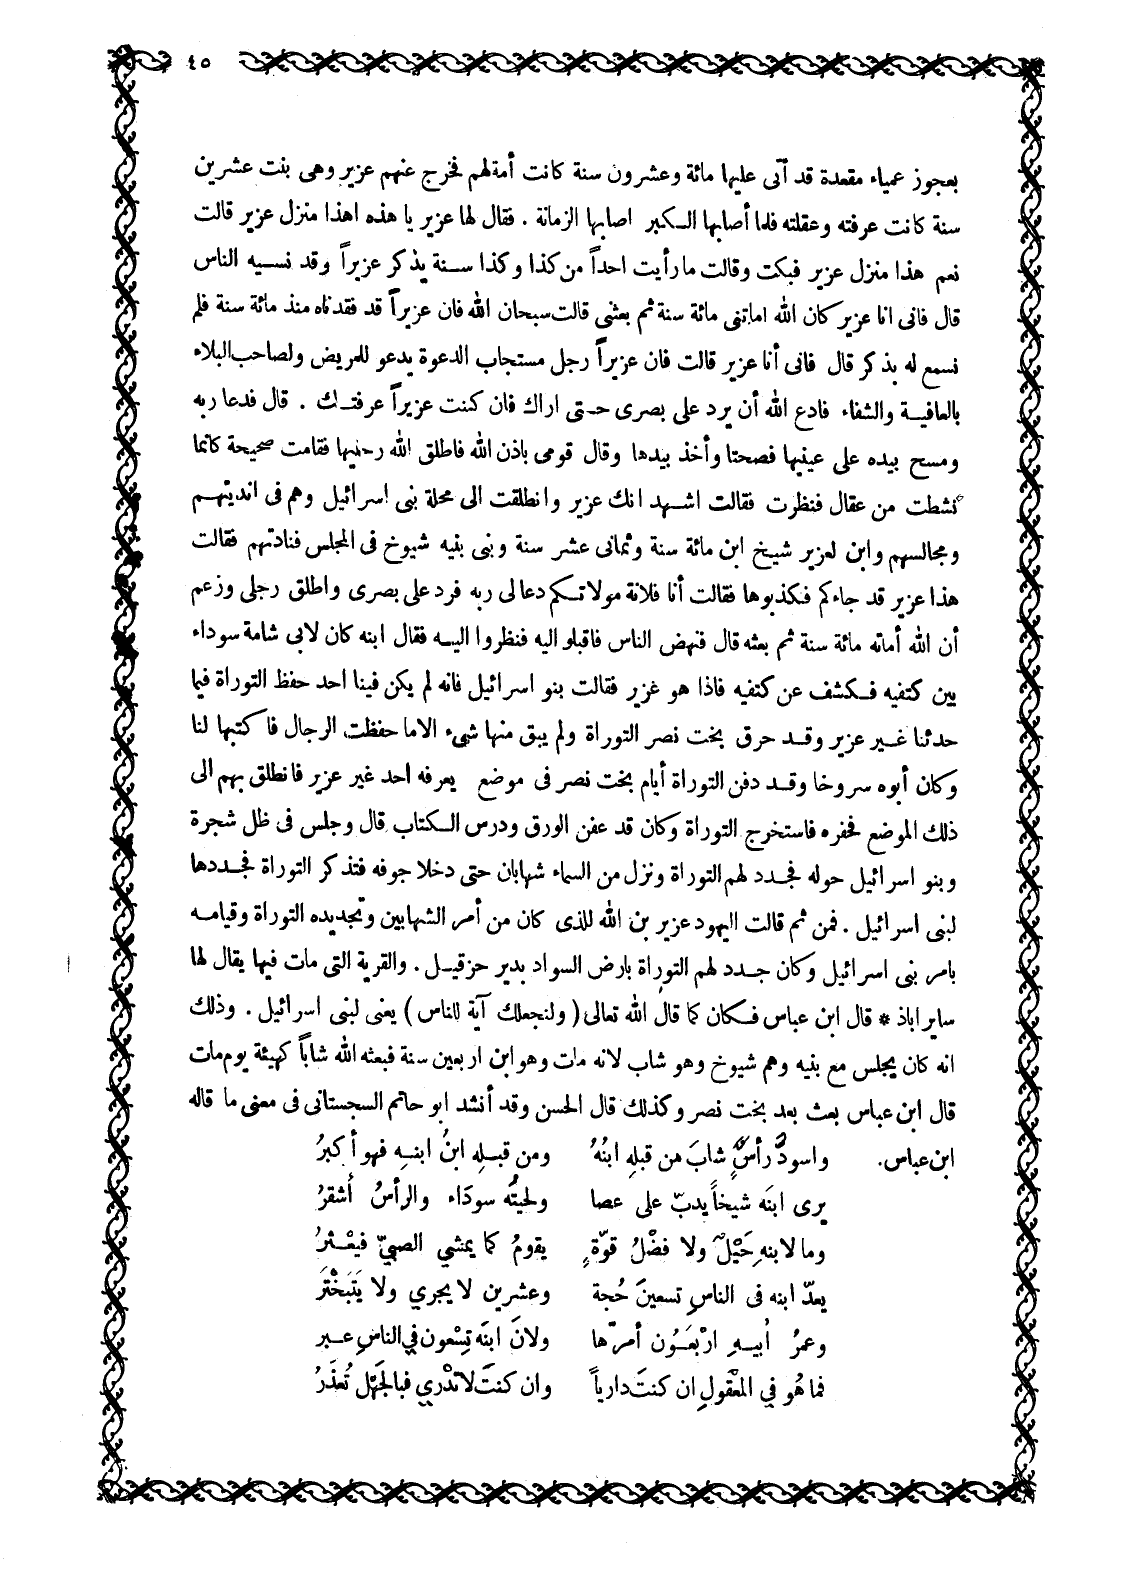 ٤٥
بعجوز عمياء مقعدة قد أتى عليها مائة وعشرون سنة كانت أمة لهم فخرج عنهم عزير وهى بنت عشرين
سنة كانت عرفته وعقلته فلما أصابها الكبر اصابها الزمانة . فقال لها عزير يا هذه اهذا منزل عزير قالت
نعم هذا منزل عزير فبكت وقالت ما رأيت احداً من كذا وكذا سنة يذكر عزيراً وقد نسيه الناس
قال فانى انا عزير كان الله اماتنى مائة سنة ثم بعثنى قالت سبحان الله فان عزيراً قد فقدناه منذ مائة سنة فلم
نسمع له بذكر قال فانى أنا عزير قالت فان عزيراً رجل مستجاب الدعوة يدعو للمريض ولصاحب البلاء
بالعافية والشفاء فادع الله أن يرد على بصرى حتى اراك فان كنت عزيراً عرفتك . قال فدعا ربه
ومسح بيده على عينيها فصحتا وأخذ بيدها وقال قومى باذن الله فاطلق الله رجليها فقامت صحيحة كانما
نشطت من عقال فنظرت فقالت اشهد انك عزير وانطلقت الى محلة بنى اسرائيل وهم فى انديتهم
ومجالسهم وابن لعزير شيخ ابن مائة سنة وثمانى عشر سنة وبنى بنيه شيوخ فى المجلس فنادتهم فقالت
هذا عزير قد جاءكم فكذبوها فقالت أنا فلانة مولاتكم دعا لى ربه فرد على بصرى واطلق رجلى وزعم
أن الله أماته مائة سنة ثم بعثه قال فنهض الناس فاقبلو اليه فنظروا اليه فقال ابنه كان لابى شامة سوداء
بين كتفيه فكشف عن كتفيه فاذا هو غزير فقالت بنو اسرائيل فانه لم يكن فينا احد حفظ التوراة فيما
حدثنا غير عزير وقد حرق بخت نصر التوراة ولم يبق منها شىء الا ما حفظت الرجال فاكتبها لنا
وكان أبوه سروخا وقد دفن التوراة أيام بخت نصر فى موضع يعرفه احد غير عزير فانطلق بهم الى
ذلك الموضع فحفره فاستخرج التوراة وكان قد عفن الورق ودرس الكتاب قال وجلس فى ظل شجرة
وبنو اسرائيل حوله فجدد لهم التوراة ونزل من السماء شهابان حتى دخلا جوفه فتذكر التوراة فجددها
لبنى اسرائيل . فمن ثم قالت اليهود عزير بن الله للذى كان من أمر الشهابين وتجديده التوراة وقيامه
بامر بنى اسرائيل وكان جدد لهم التوراة بارض السواد بدير حزقيل . والقرية التى مات فيها يقال لها
سايراباذ * قال ابن عباس فكان كما قال الله تعالى ( ولنجعلك آية للناس ) يعنى لبنى اسرائيل . وذلك
انه كان يجلس مع بنيه وهم شيوخ وهو شاب لانه مات وهو ابن اربعين سنة فبعثه الله شاباً كهيئة يوم مات
قال ابن عباس بعث بعد بخت نصر وكذلك قال الحسن وقد أنشد ابو حاتم السجستانى فى معنى ما قاله
ابن عباس. واسودُّ رأسٌ شابَ من قبلهِ ابنُهُ ومن قبلهِ ابنُ ابنهِ فهو أكبرُ
يرى ابنَه شيخاً يدبّ على عصا ولحيتُه سودَاء والرأسُ أشقرُ
وما لابنهِ حَيْلٌ ولا فضْلُ قوّةٍ يقومُ كما يمشي الصبيّ فيعْثرُ
يعدّ ابنه فى الناسِ تسعينَ حُجة وعشرين لا يجري ولا يَتَبَخْتَر
وعمرُ أبيهِ ارْبعَون أمرّها ولانَ ابنَه تِسْعون في الناسِ عبر
فما هُو في المعْقولِ ان كنتَ دارياً وان كنتَ لا تدْري فبالجَهْل تُعذَرُ